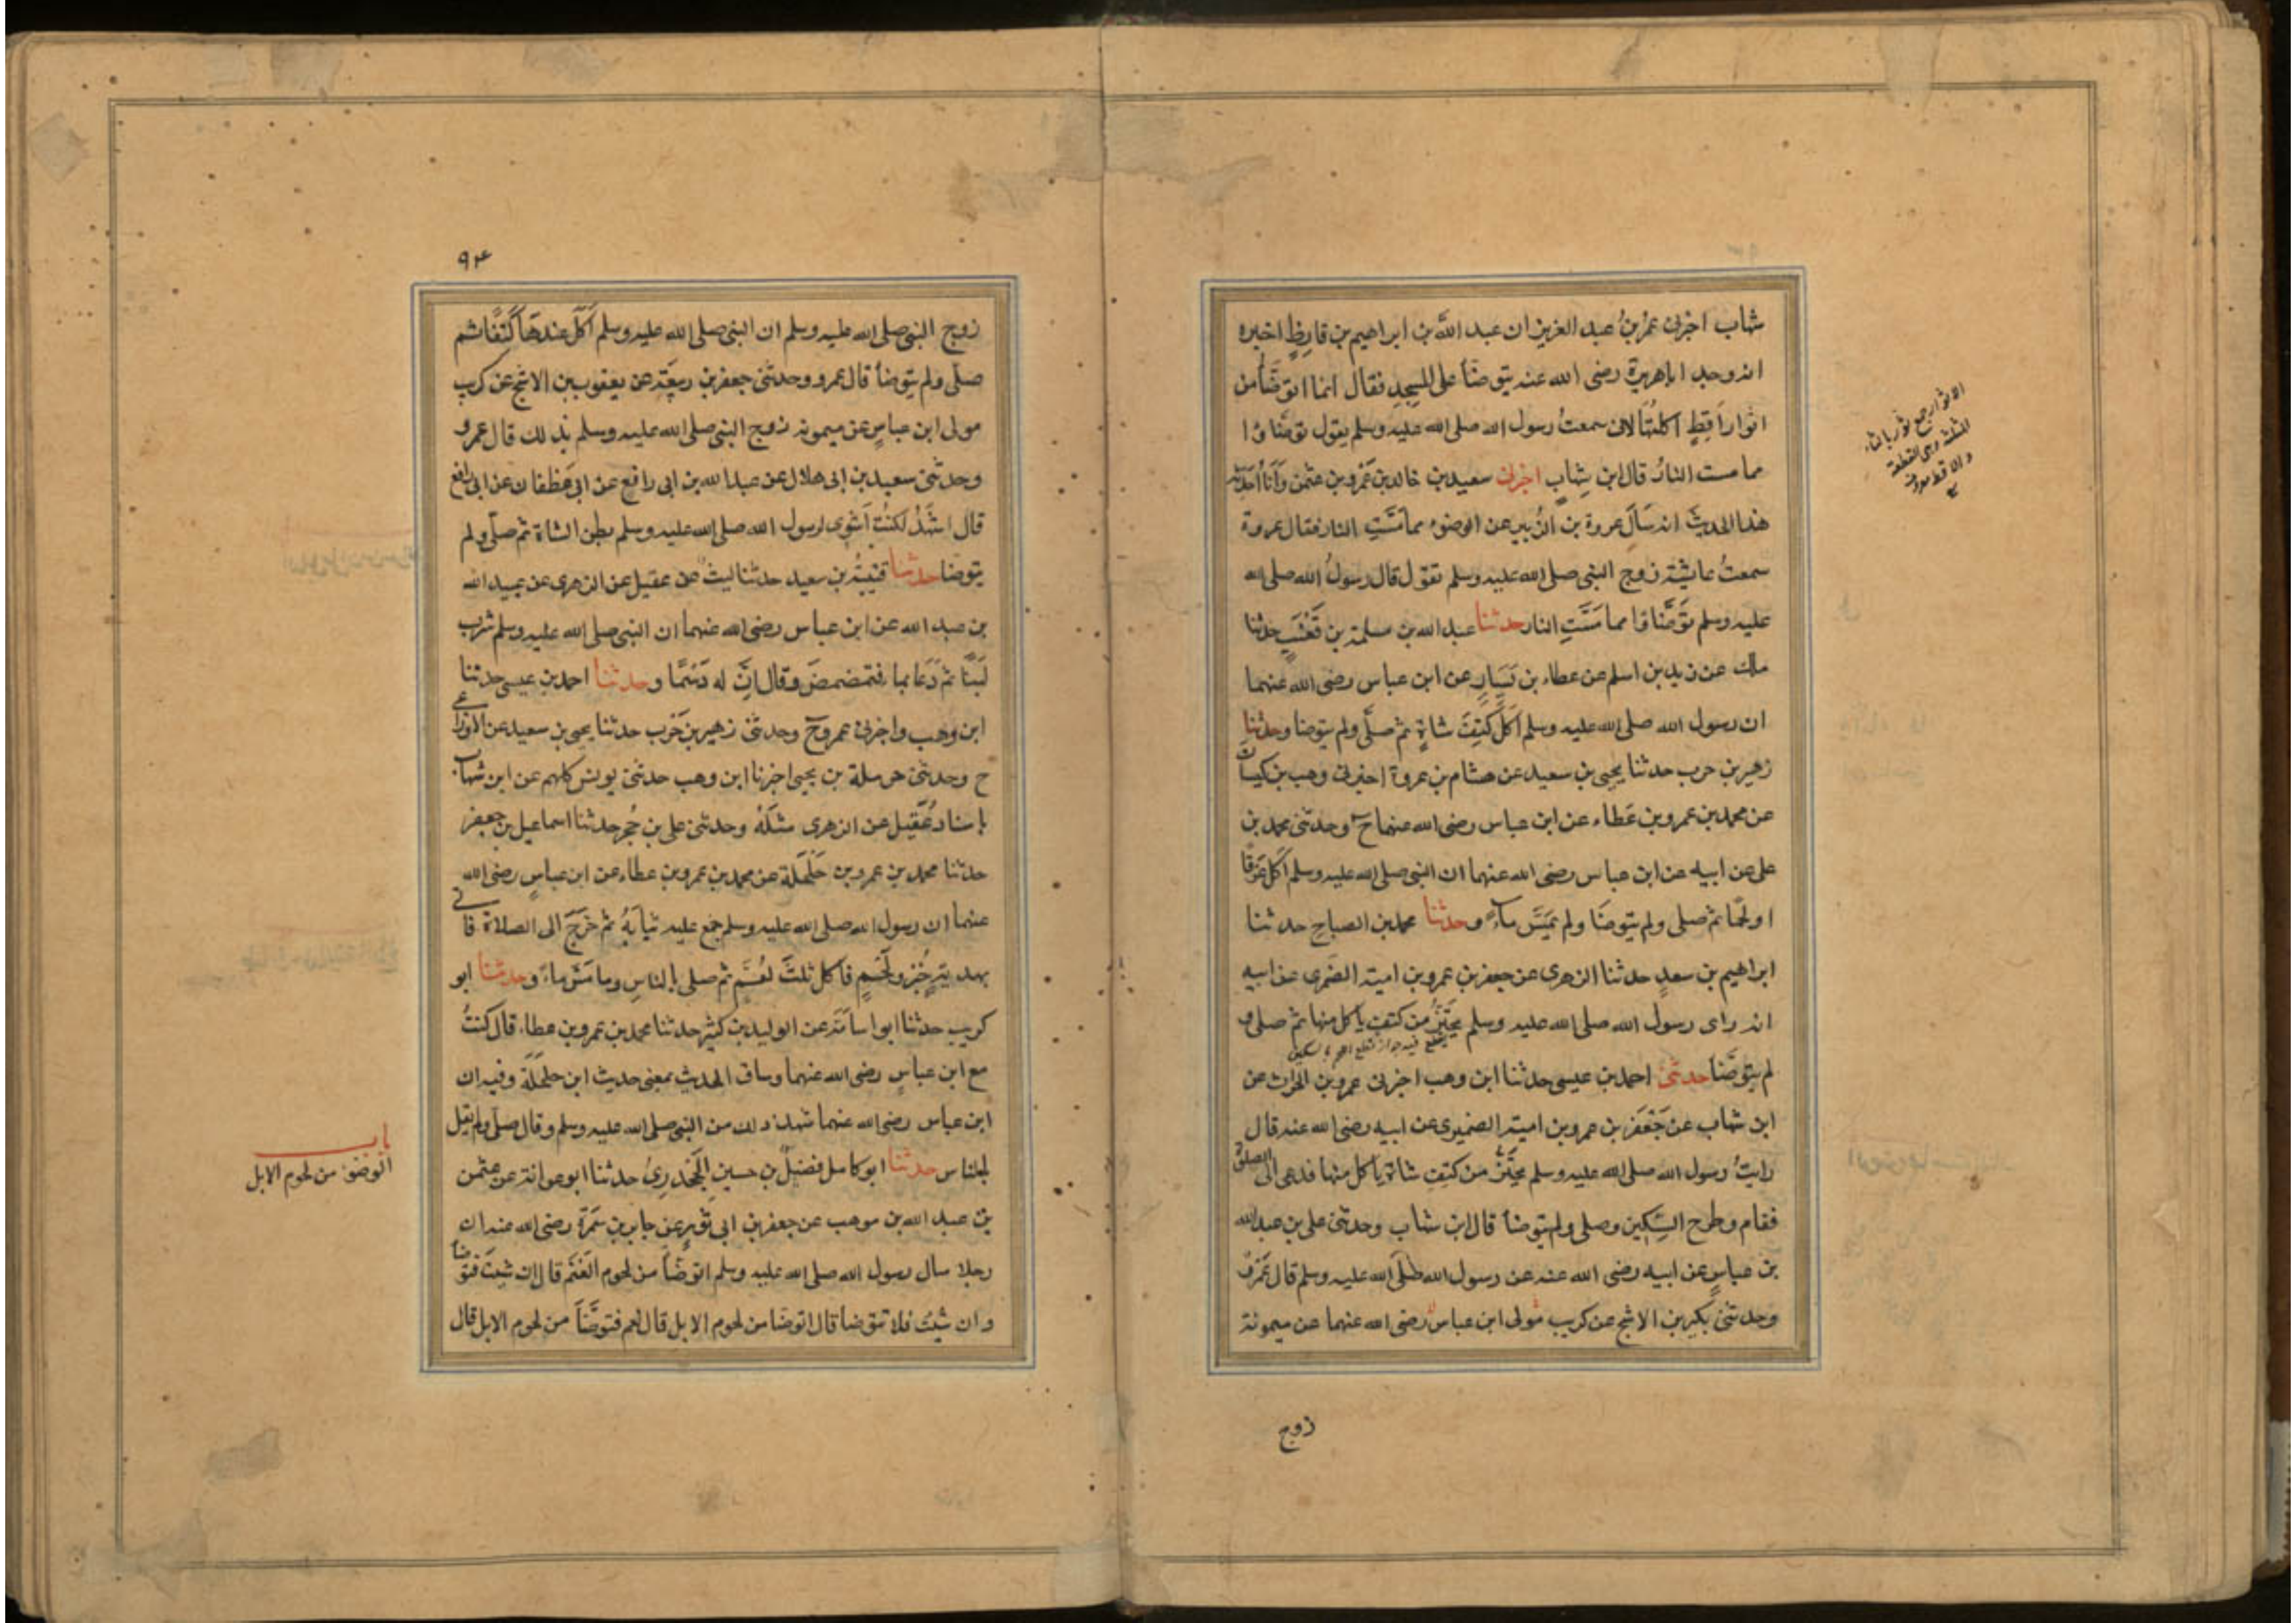 شهاب اخبرنى عمر بن عبد العزيز ان عبد الله بن ابراهيم بن قارظ اخبره
انه وجد اباهريرة رضى الله عنه يتوضأ على المسجد فقال انما اتوضأ من
اثوار اقط اكلتها لانى سمعت رسول الله صلى الله عليه وسلم يقول توضاوا
مما مست النار قال ابن شهاب اخبرنى سعيد بن خالد بن عمرو بن عثمن وانا احدثه
هذا الحديث انه سال عروة بن الزبير عن الوضوء مما مست النار فقال عروة
سمعت عايشة زوج النبى صلى الله عليه وسلم تقول قال رسول الله صلى الله
عليه وسلم توضاوا مما مست النار حدثنا عبد الله بن مسلمة بن قعنب حدثنا
ملك عن زيد بن اسلم عن عطاء بن يسار عن ابن عباس رضى الله عنهما
ان رسول الله صلى الله عليه وسلم اكل كتف شاة ثم صلى ولم يتوضا وحدثنا
زهير بن حرب حدثنا يحيى بن سعيد عن هشام بن عروة اخبرنى وهب بن كيسان
عن محمد بن عمرو بن عطاء عن ابن عباس رضى الله عنهما ح وحدثنى محمد بن
على عن ابيه عن ابن عباس رضى الله عنهما ان النبى صلى الله عليه وسلم اكل عرقا
او لحما ثم صلى ولم يتوضا ولم يمس ماء وحدثنا محمد بن الصباح حدثنا
ابراهيم بن سعد حدثنا الزهرى عن جعفر بن عمرو بن امية الضمرى عن ابيه
انه راى رسول الله صلى الله عليه وسلم يحتز من كتف ياكل منها ثم صلى و
يقطع فيه جواز قطع اللحم بالسكين
لم يتوضأ حدثنى احمد بن عيسى حدثنا ابن وهب اخبرنى عمرو بن الحرث عن
ابن شهاب عن جعفر بن عمرو بن امية الضميرى عن ابيه رضى الله عنه قال
رايت رسول الله صلى الله عليه وسلم يحتز من كتف شاة ياكل منها فدعى الى الصلوة
فقام وطرح السكين وصلى ولم يتوضأ قال ابن شهاب وحدثنى على بن عبد الله
بن عباس عن ابيه رضى الله عنه عن رسول الله صلى الله عليه وسلم قال عمرو
وحدثنى بكير بن الاشج عن كريب مولى ابن عباس رضى الله عنهما عن ميمونة
زوج
الاثوار جمع ثور بالثاء
المثلثة وهى القطعة
والاقط معروف
٩٤
زوج النبى صلى الله عليه وسلم ان النبى صلى الله عليه وسلم اكل عندها كتفا ثم
صلى ولم يتوضأ قال عمرو وحدثنى جعفر بن ربيعة عن يعقوب بن الاشج عن كريب
مولى ابن عباس عن ميمونة زوج النبى صلى الله عليه وسلم بذلك قال عمرو
وحدثنى سعيد بن ابى هلال عن عبد الله بن ابى رافع عن ابى غطفان عن ابى رافع
قال اشهد لكنت اشوى لرسول الله صلى الله عليه وسلم بطن الشاة ثم صلى ولم
يتوضا حدثنا قتيبة بن سعيد حدثنا ليث عن عقيل عن الزهرى عن عبيد الله
بن عبد الله عن ابن عباس رضى الله عنهما ان النبى صلى الله عليه وسلم شرب
لبنا ثم دعا بما فتمضمض وقال ان له دسما وحدثنا احمد بن عيسى حدثنا
ابن وهب واخبرنى عمرو ح وحدثنى زهير بن حرب حدثنا يحيى بن سعيد عن الاوزاعى
ح وحدثنى حرملة بن يحيى اخبرنا ابن وهب حدثنى يونس كلهم عن ابن شهاب
باسناد عقيل عن الزهرى مثله وحدثنى على بن حجر حدثنا اسماعيل بن جعفر
حدثنا محمد بن عمرو بن حلحلة عن محمد بن عمرو بن عطاء عن ابن عباس رضى الله
عنهما ان رسول الله صلى الله عليه وسلم جمع عليه ثيابه ثم خرج الى الصلاة فاتى
بهدية خبز ولحم فاكل ثلث لقم ثم صلى بالناس وما مس ماء وحدثنا ابو
كريب حدثنا ابو اسامة عن الوليد بن كثير حدثنا محمد بن عمرو بن عطاء قال كنت
مع ابن عباس رضى الله عنهما وساق الحديث بمعنى حديث ابن حلحلة وفيه ان
ابن عباس رضى الله عنهما شهد ذلك من النبى صلى الله عليه وسلم وقال صلى ولم يقل
بالناس حدثنا ابو كامل فضيل بن حسين الجحدرى حدثنا ابو عوانة عن عثمن
بن عبد الله بن موهب عن جعفر بن ابى ثور عن جابر بن سمرة رضى الله عنه ان
رجلا سال رسول الله صلى الله عليه وسلم اتوضأ من لحوم الغنم قال ان شيت فتوضأ
وان شيت فلا تتوضا قال اتوضا من لحوم الابل قال نعم فتوضأ من لحوم الابل قال
باب
الوضوء من لحوم الابل